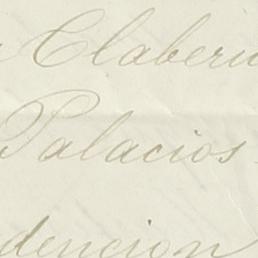 Claberu
Palacios
dencion